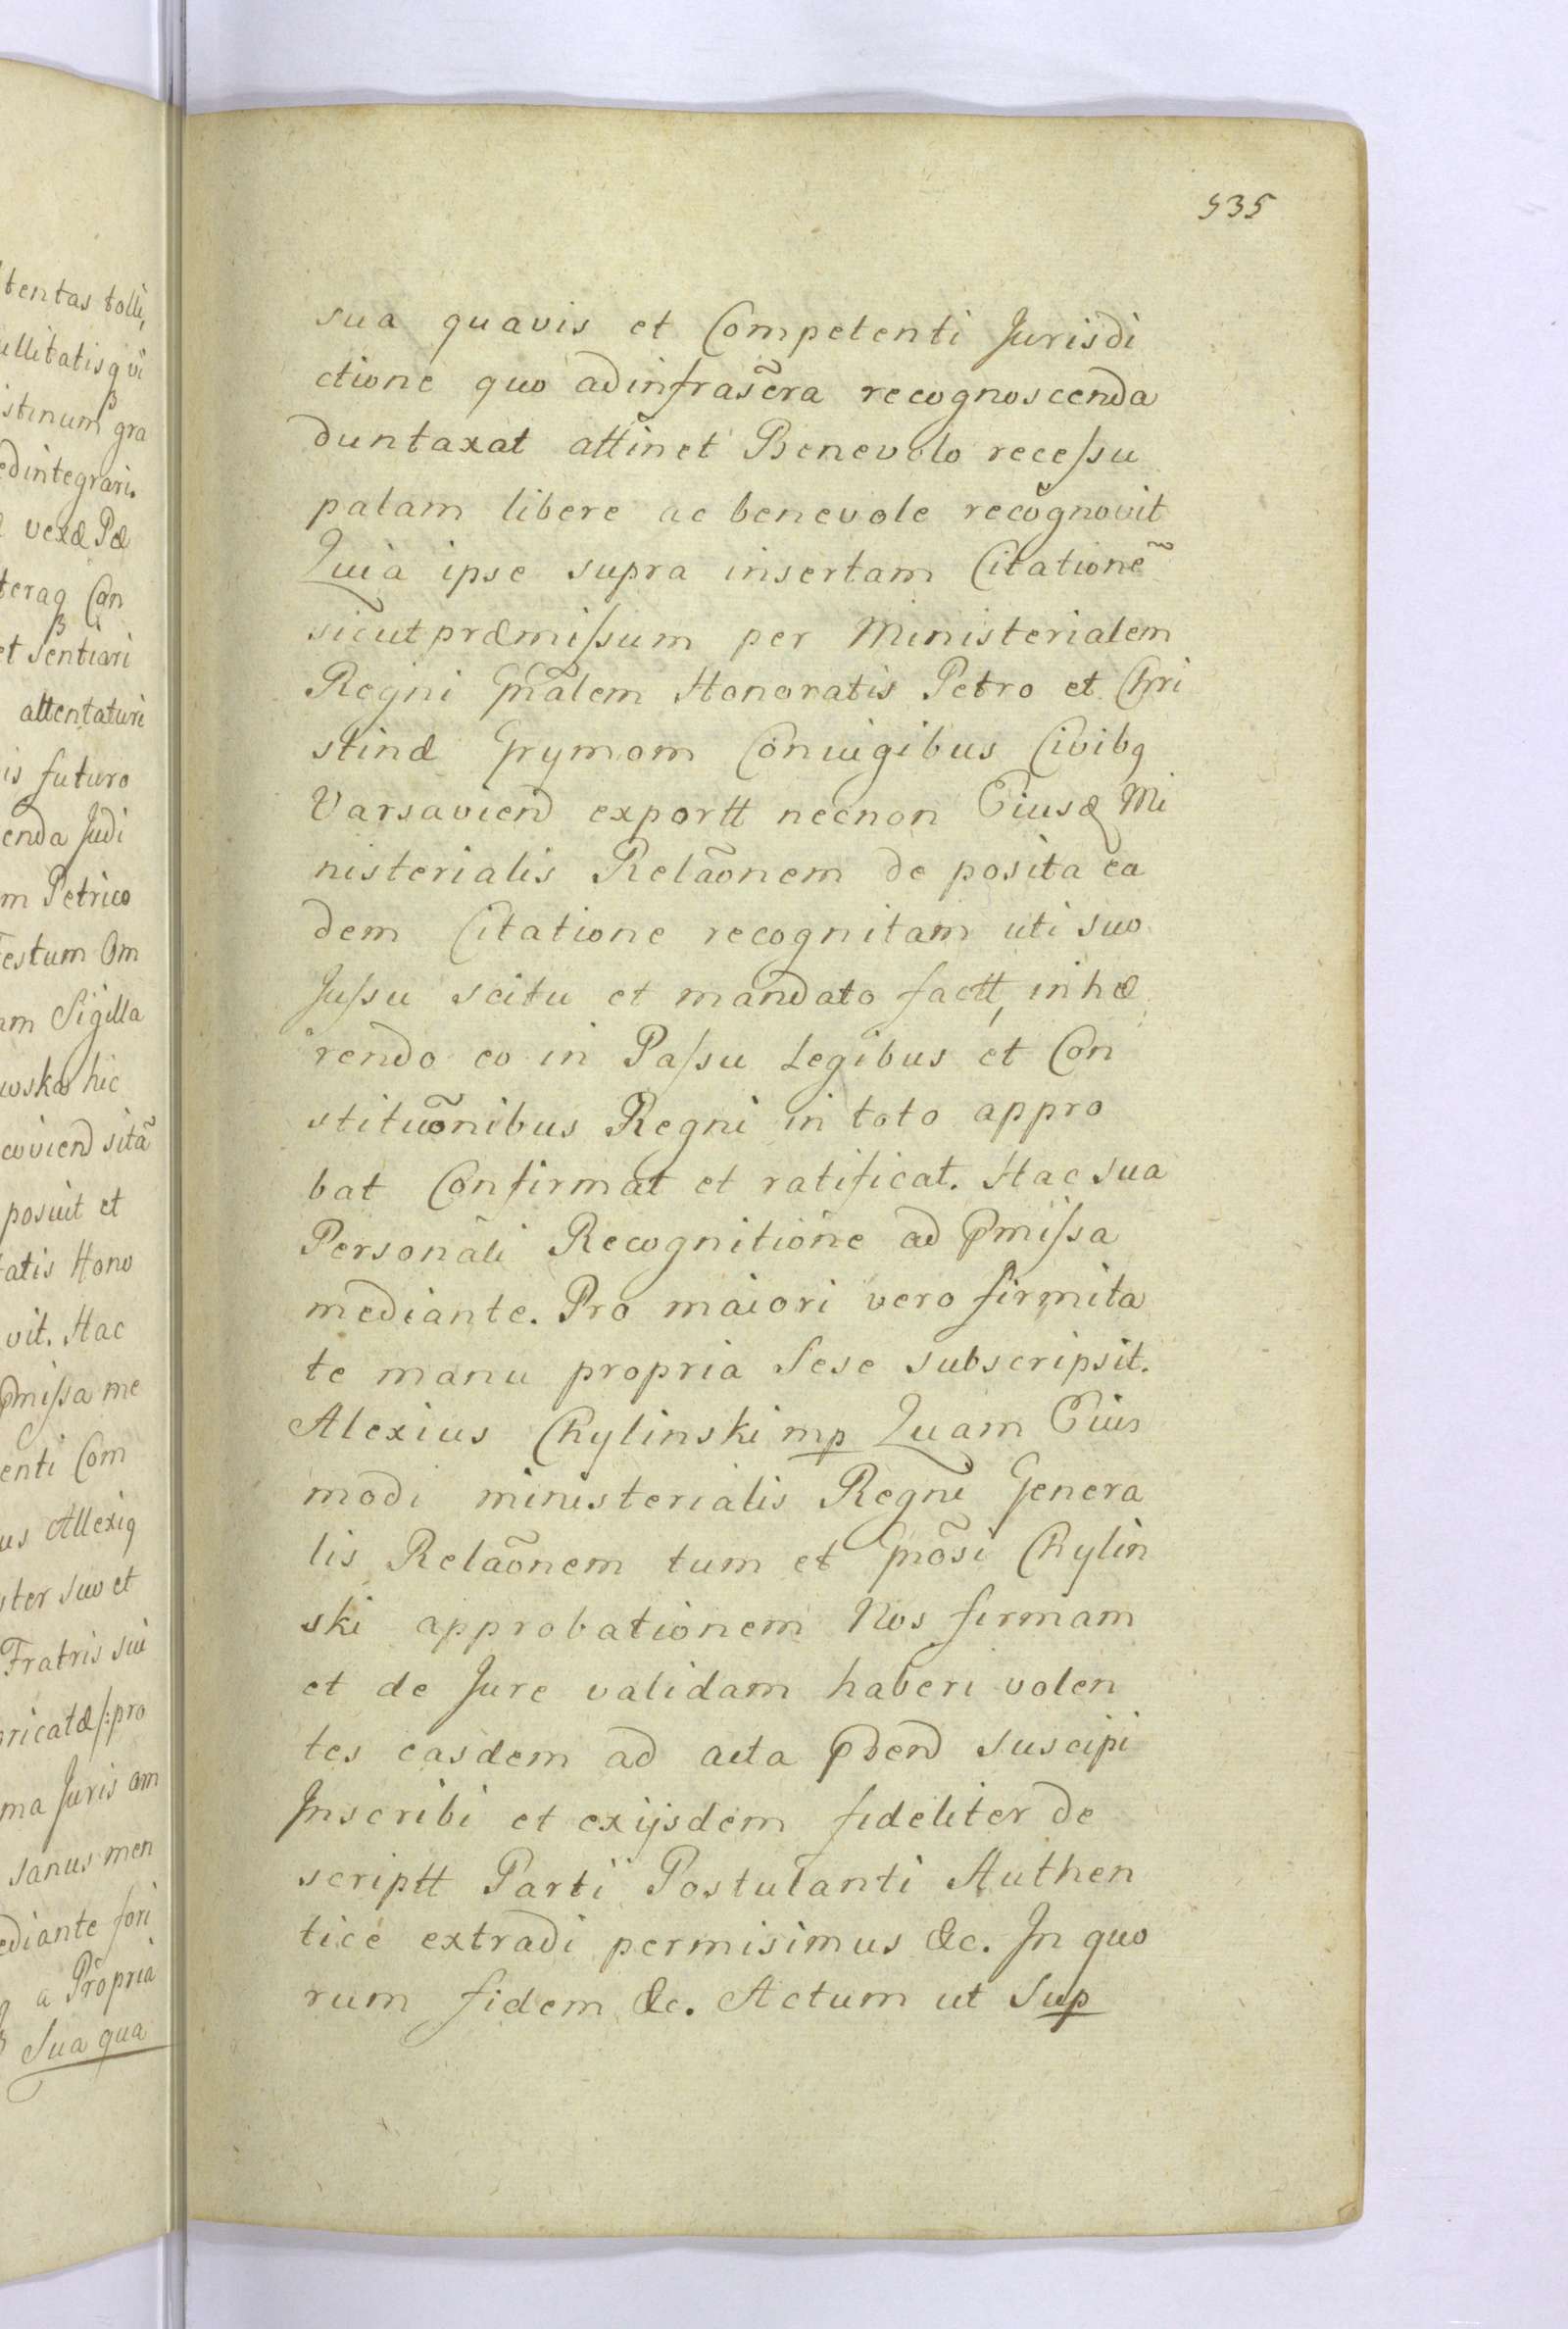 535
sua quavis et Competenti Jurisdi
ctione quo adinfrasc̃ra recognoscenda
duntaxat attinet Benevolo recessu
palam libere ac benevole recognovit
Quia ipse supra insertam Citationẽ
sicut præmissum per Ministerialem
Regni Gñalem Honoratis Petro et Chri
stinæ Grymom Coniugibus Civibq
Varsaviend exportt necnon Eiusd Mi
nisterialis Relãonem de posita ea
dem Citatione recognitam uti suo
Jussu scitu et mandato factt, inhæ
rendo eo in Passu Legibus et Con
stituõnibus Regni in toto appro
bat Confirmat et ratificat. Hac sua
Personali Recognitione ad pmissa
mediante. Pro maiori vero firmita
te manu propria Sese subscripsit.
Alexius Chylinski mp Quam Eius
modi ministerialis Regni Genera
lis Relãonem tum et Gñosi Chylin
ski approbationem Nos firmam
et de Jure validam haberi volen
tes easdem ad acta pdend suscipi
Inscribi et exijsdem fideliter de
scriptt Parti Postulanti Authen
tice extradi permisimus &c. In quo
rum fidem &c. Actum ut Sup
tentas tolli,
stinum gra
edintegrari.
vexæ Pæ
teraq Can
et Sentiari
attentaturi
is futuro
enda Judi
m Petrico
estum Om
am Sigilla
wska hic
coviend sitã
posuit et
atis Hono
vit. Hac
pmissa me
enti Com
us Allexiq
ster suo et
Fratris sui
ricatæ/:pro
ma Juris am
sanus men
ediante fori
a Propria
Sua qua